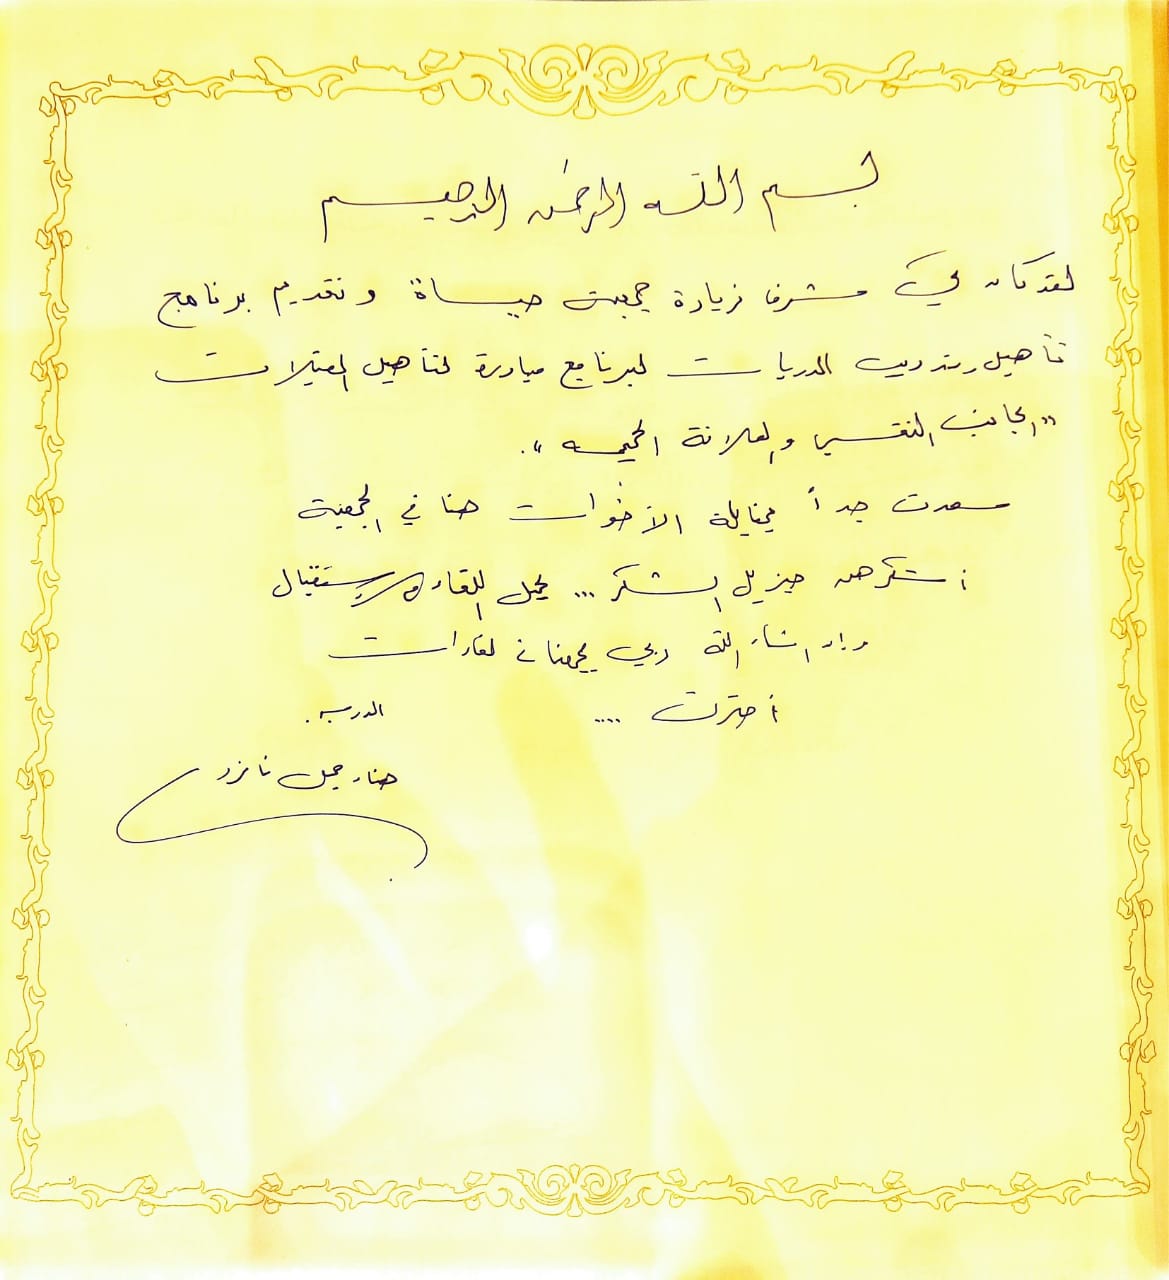 بسم الله الرحمن الرحيم
لقد كان لي شرف زيارة جمعية حياة وتقديم برنامج
تأهيل وتدريب المدربات لبرنامج مبادرة لتأهيل المقبلات
"الجانب النفسي والعلاقة الحميمه".
سعدت جداً بمقابلة الأخوات هنا في الجمعية
أشكرهن جزيل الشكر ... لجميل اللقاء والإستقبال
وإن شاء الله ربي يجمعنا في لقاءات
أخرى ....
المدربه.
هناء